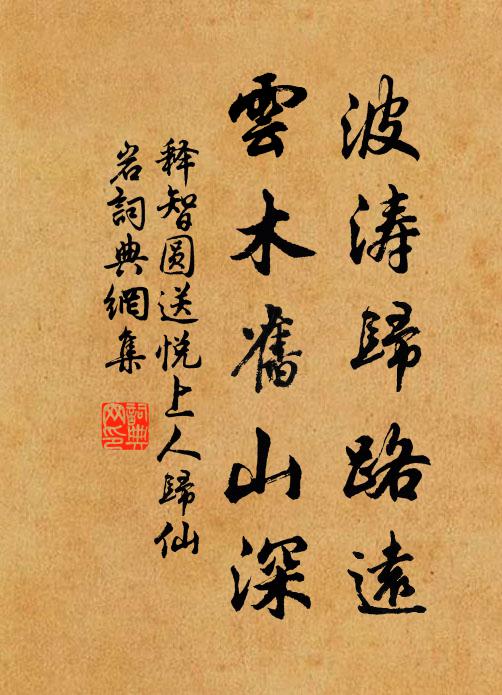 波涛歸路遠
雲木舊山深
释智圆送悦上人歸仙
岩詞典網集
詞典
网印